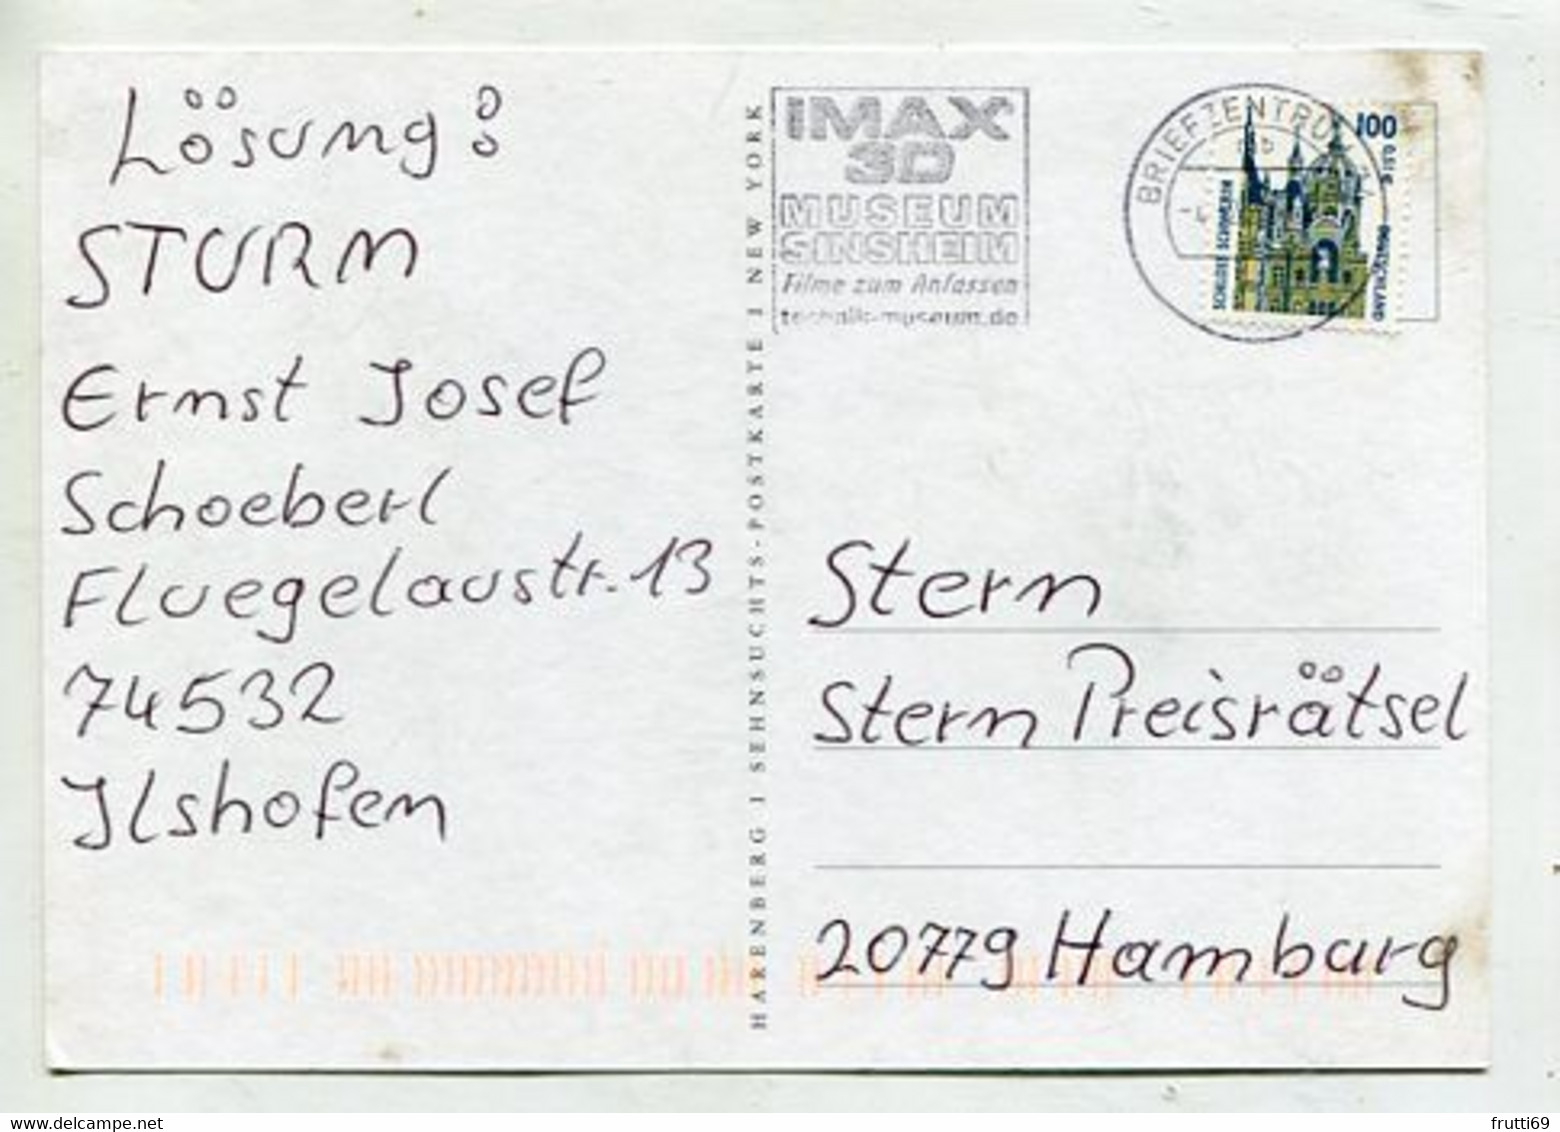 Lösung:
STURM
Ernst Josef
Schoeberl
Fluegelaustr. 13
74532
Ilshofen
HARENBERG I SEHNSUCHTS-POSTKARTE I NEW YORK
IMAX
3D
MUSEUM
SINSHEIM
Filme zum Anfassen
technik-museum.de
BRIEFZENTRUM
100
0,51 €
SCHLOSS SCHWERIN
DEUTSCHLAND
Stern
Stern Preisrätsel
20779 Hamburg
frutti69